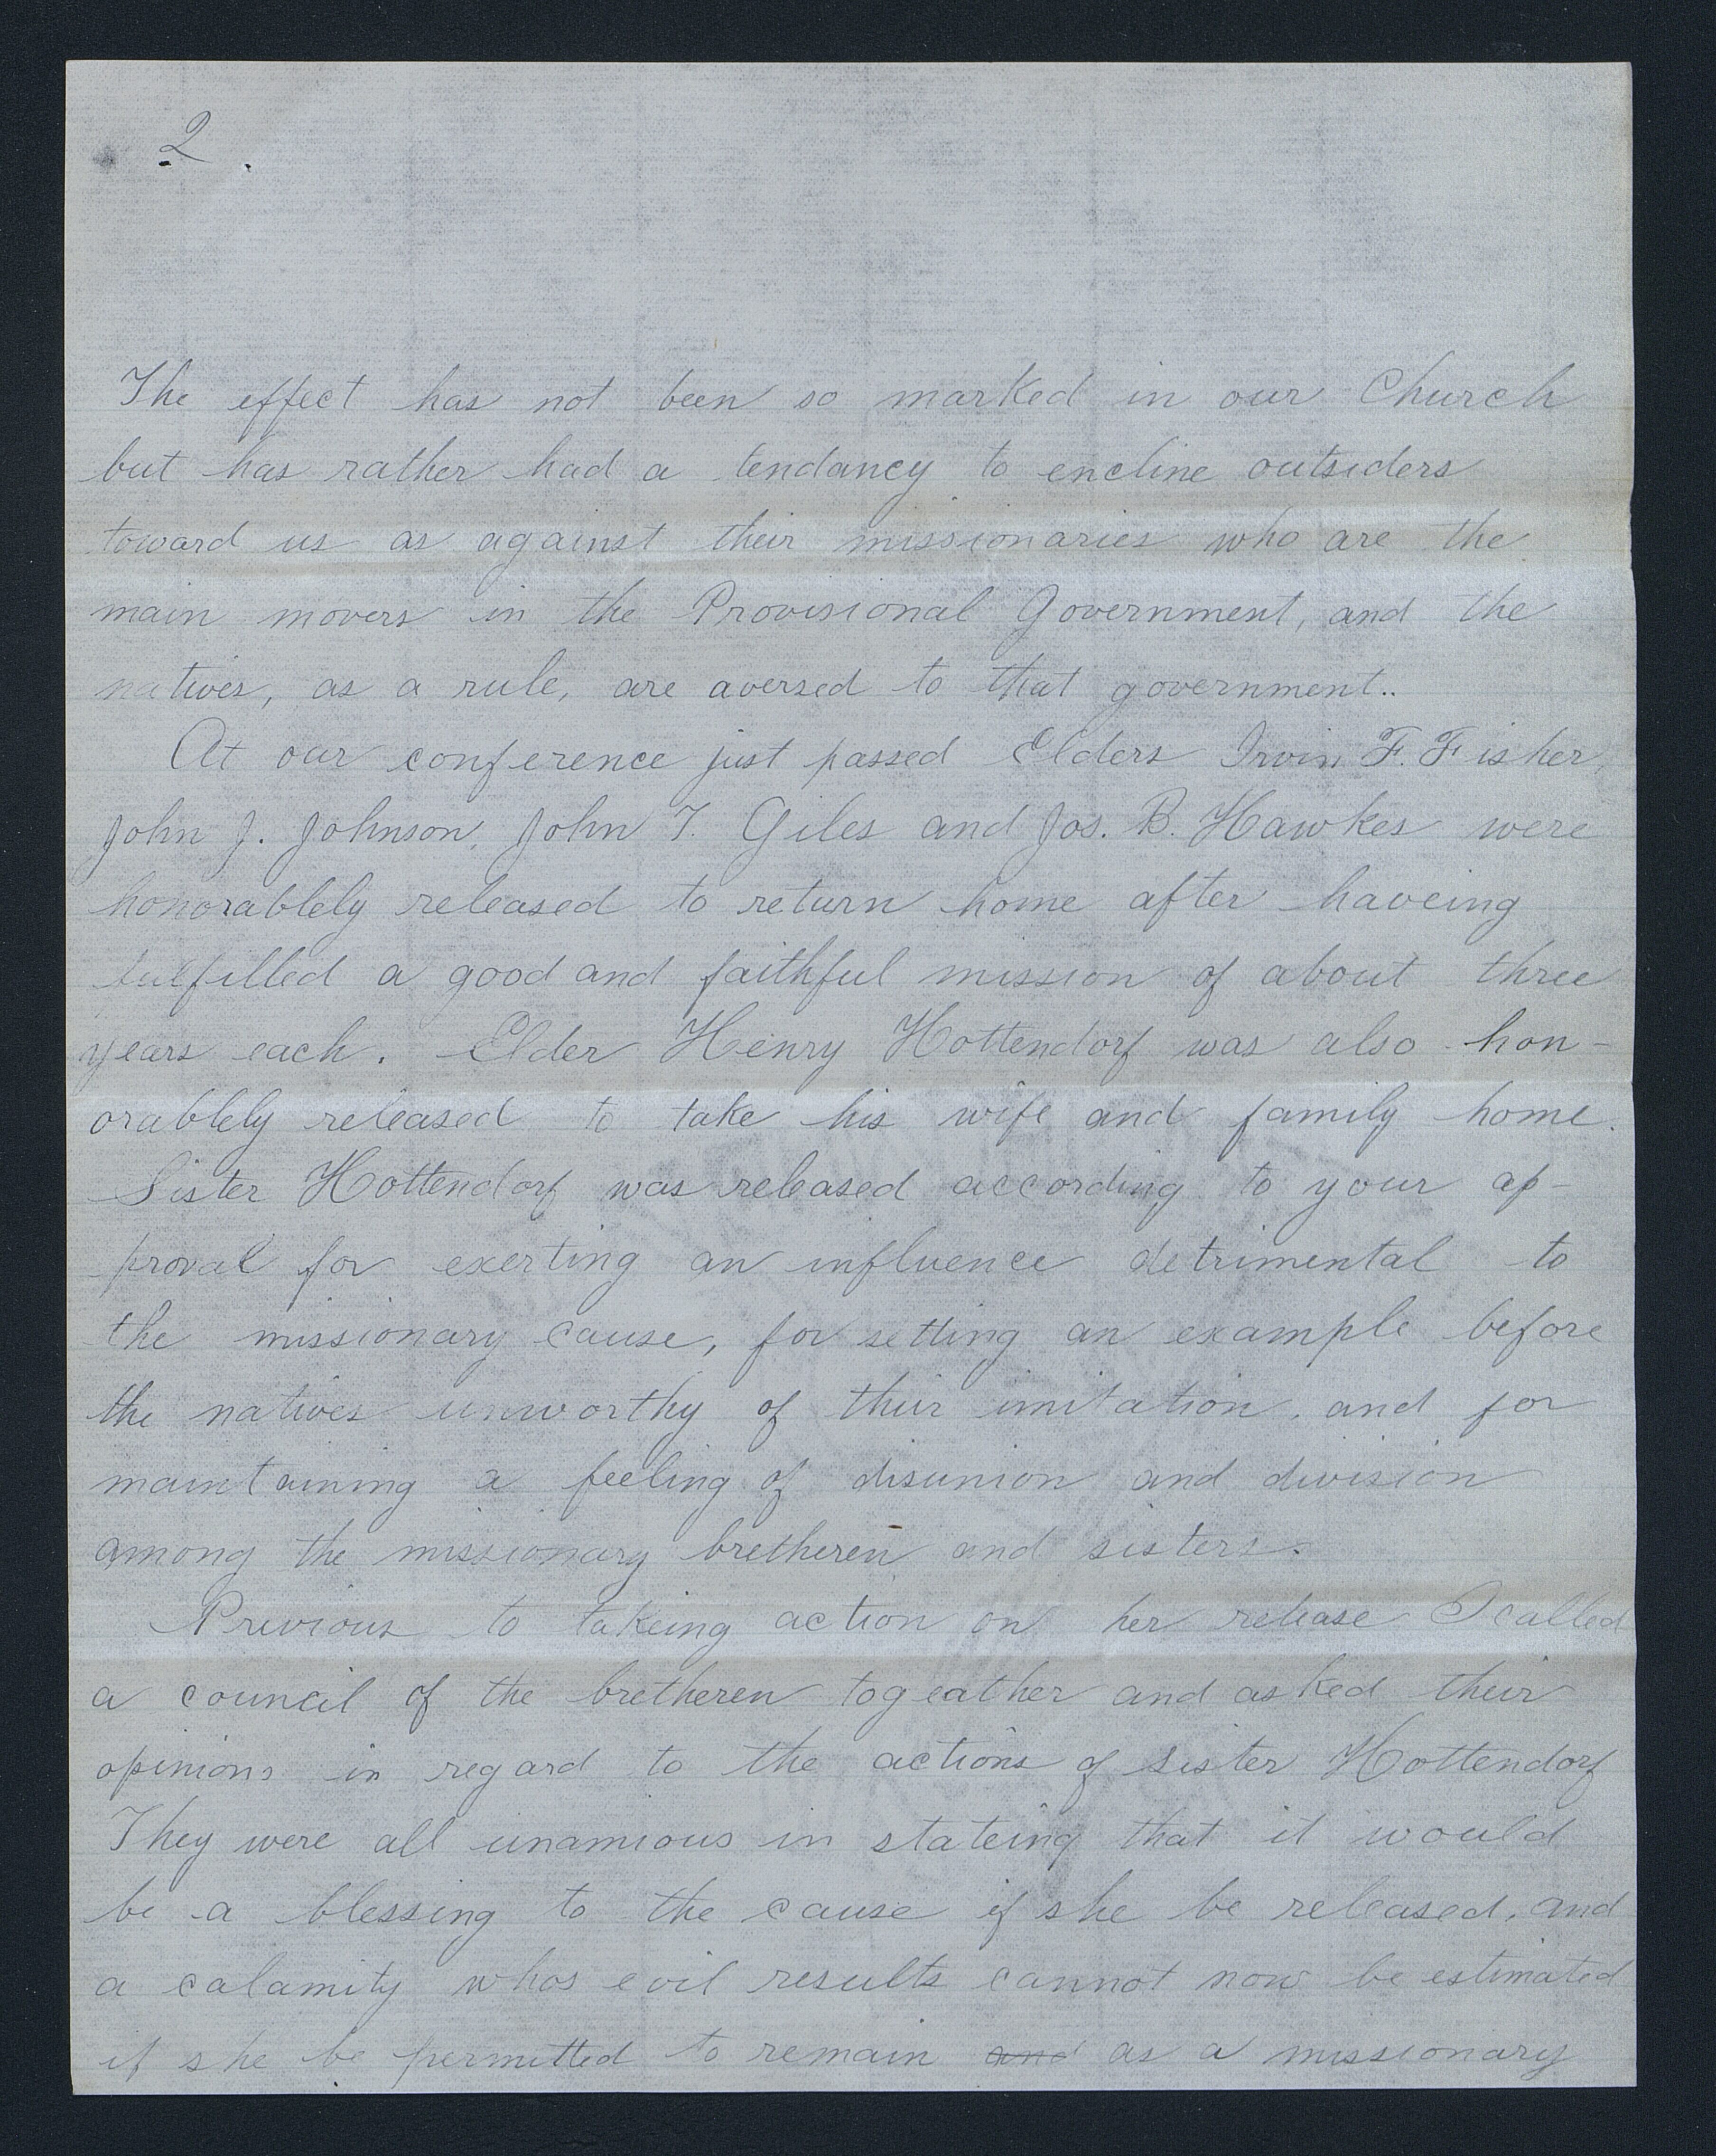 2
The effect has not been so marked in our Church
but has rather had a tendancy to encline outsiders
toward us as against their missionaries who are the
main movers in the Provisional Government, and the
natives, as a rule, are aversed to that government..
At our conference just passed Elders Irvin F. Fisher,
John J. Johnson, John T. Giles and Jos. B. Hawkes were
honorablely released to return home after haveing
fulfilled a good and faithful mission of about three
years each. Elder Henry Hottendorf was also hon-
orablely released to take his wife and family home.
Sister Hottendorf was released according to your ap-
proval for exerting an influence detrimental to
the missionary cause, for setting an example before
the natives unworthy of their imitation, and for
maintaining a feeling of disunion and division
among the missionary bretheren and sisters.
Previous to takeing action on her release I called
a council of the bretheren togeather and asked their
opinions in regard to the actions of sister Hottendorf
They were all unamious in stateing that it would
be a blessing to the cause if she be released, and
a calamity whos evil results cannot now be estimated
if she be permitted to remain and as a missionary